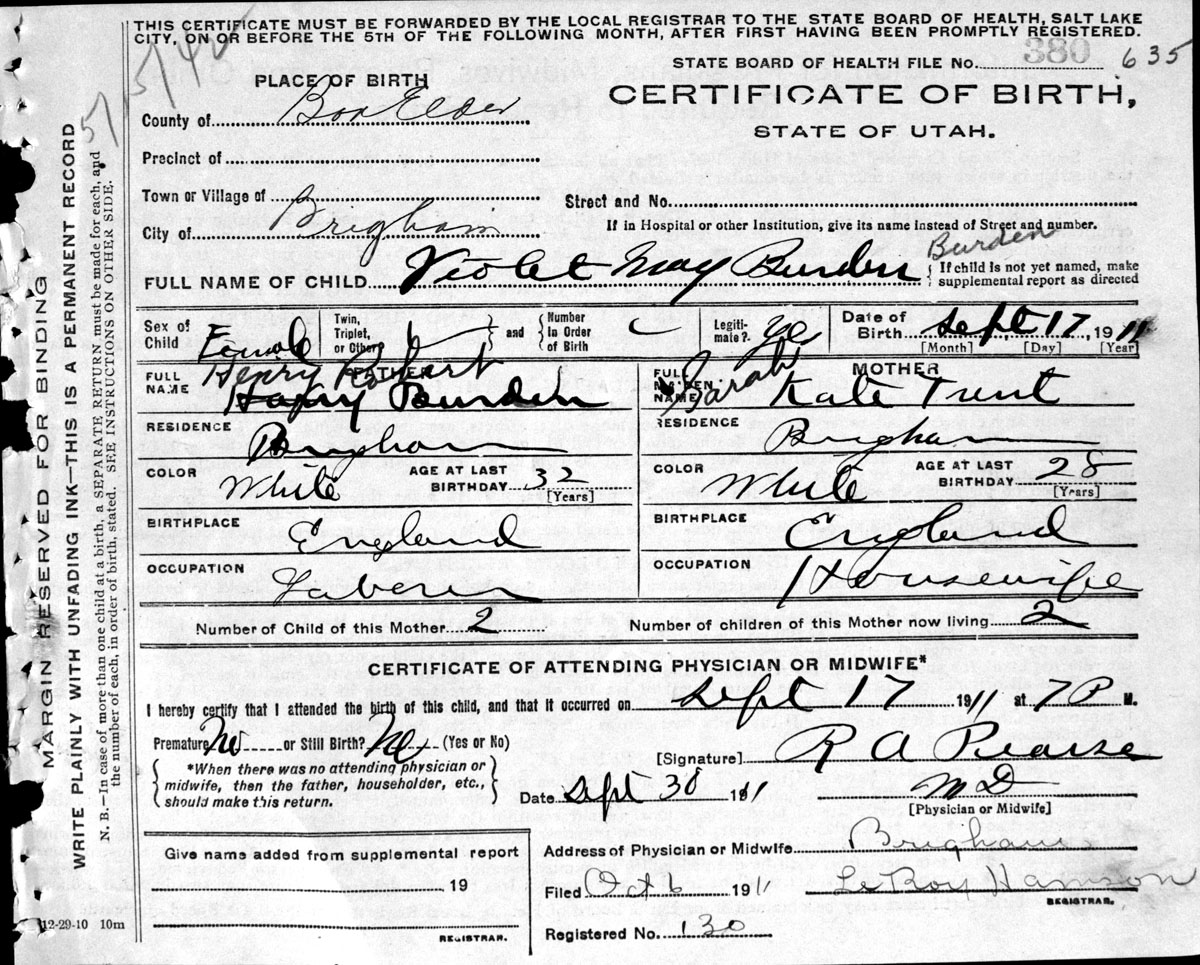 THIS CERTIFICATE MUST BE FORWARDED BY THE LOCAL REGISTRAR TO THE STATE BOARD OF HEALTH, SALT LAKE
CITY, ON OR BEFORE THE 5TH OF THE FOLLOWING MONTH, AFTER FIRST HAVING BEEN PROMPTLY REGISTERED.
STATE BOARD OF HEALTH FILE No. 380 635
PLACE OF BIRTH
CERTIFICATE OF BIRTH,
STATE OF UTAH.
County of Box Elder
Precinct of
Town or Village of
Street and No.
City of Brigham
If in Hospital or other Institution, give its name instead of Street and number.
Burden
FULL NAME OF CHILD Violet May Burden { If child is not yet named, make
supplemental report as directed
Sex of Child Female Twin, Triplet, or Other } and { Number In Order of Birth Legitimate? yes Date of Birth Sept 17, 1911
[Month] [Day] [Year]
FATHER MOTHER
Henry Robert
FULL NAME Harry Burden FULL MAIDEN NAME Sarah Kate Trent
RESIDENCE Brigham RESIDENCE Brigham
COLOR White AGE AT LAST BIRTHDAY 32 [Years] COLOR White AGE AT LAST BIRTHDAY 28 [Years]
BIRTHPLACE England BIRTHPLACE England
OCCUPATION Laborer OCCUPATION Housewife
Number of Child of this Mother 2 Number of children of this Mother now living 2
CERTIFICATE OF ATTENDING PHYSICIAN OR MIDWIFE*
I hereby certify that I attended the birth of this child, and that it occurred on Sept 17 1911 at 7 P M.
Premature No or Still Birth? No (Yes or No)
[Signature] R A Pearse
{ *When there was no attending physician or
midwife, then the father, householder, etc.,
should make this return. }
Date Sept 30 1911 M D
[Physician or Midwife]
Give name added from supplemental report
19
REGISTRAR.
Address of Physician or Midwife Brigham
Filed Oct 6 1911 LeRoy Hanson
REGISTRAR.
Registered No. 130
12-29-10 10m
MARGIN RESERVED FOR BINDING
WRITE PLAINLY WITH UNFADING INK—THIS IS A PERMANENT RECORD
N. B.—In case of more than one child at a birth, a SEPARATE RETURN must be made for each, and
the number of each, in order of birth, stated. SEE INSTRUCTIONS ON OTHER SIDE.